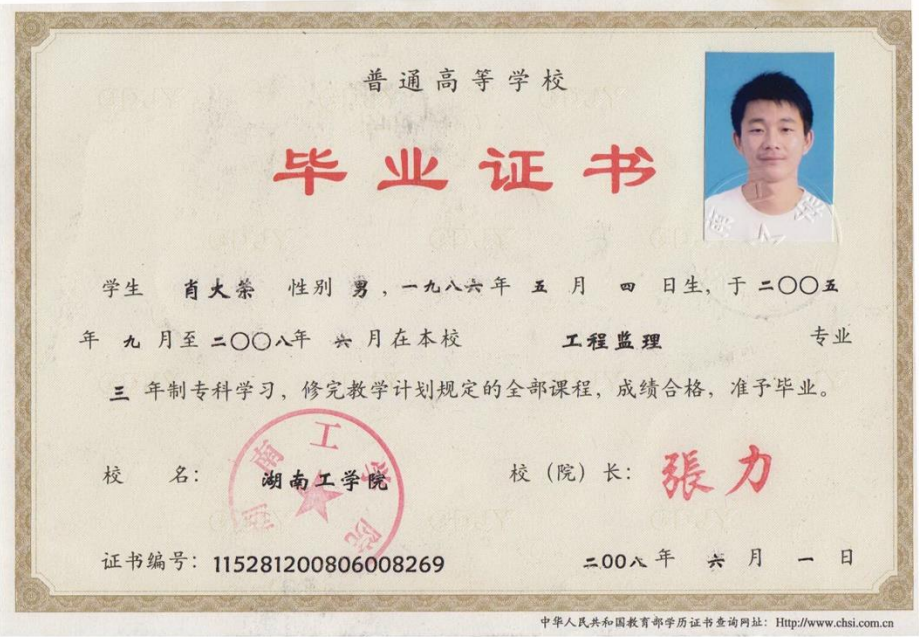 普通高等学校
毕业证书
学生 肖大荣 性别 男 ,一九八六年 五 月 四 日生,于二〇〇五
年 九 月至二〇〇八年 六 月在本校 工程监理 专业
三 年制专科学习,修完教学计划规定的全部课程,成绩合格,准予毕业。
湖南工学院
校 名: 湖南工学院 校(院)长: 張力
证书编号: 115281200806008269 二00八年 六 月 一 日
中华人民共和国教育部学历证书查询网址: Http://www.chsi.com.cn